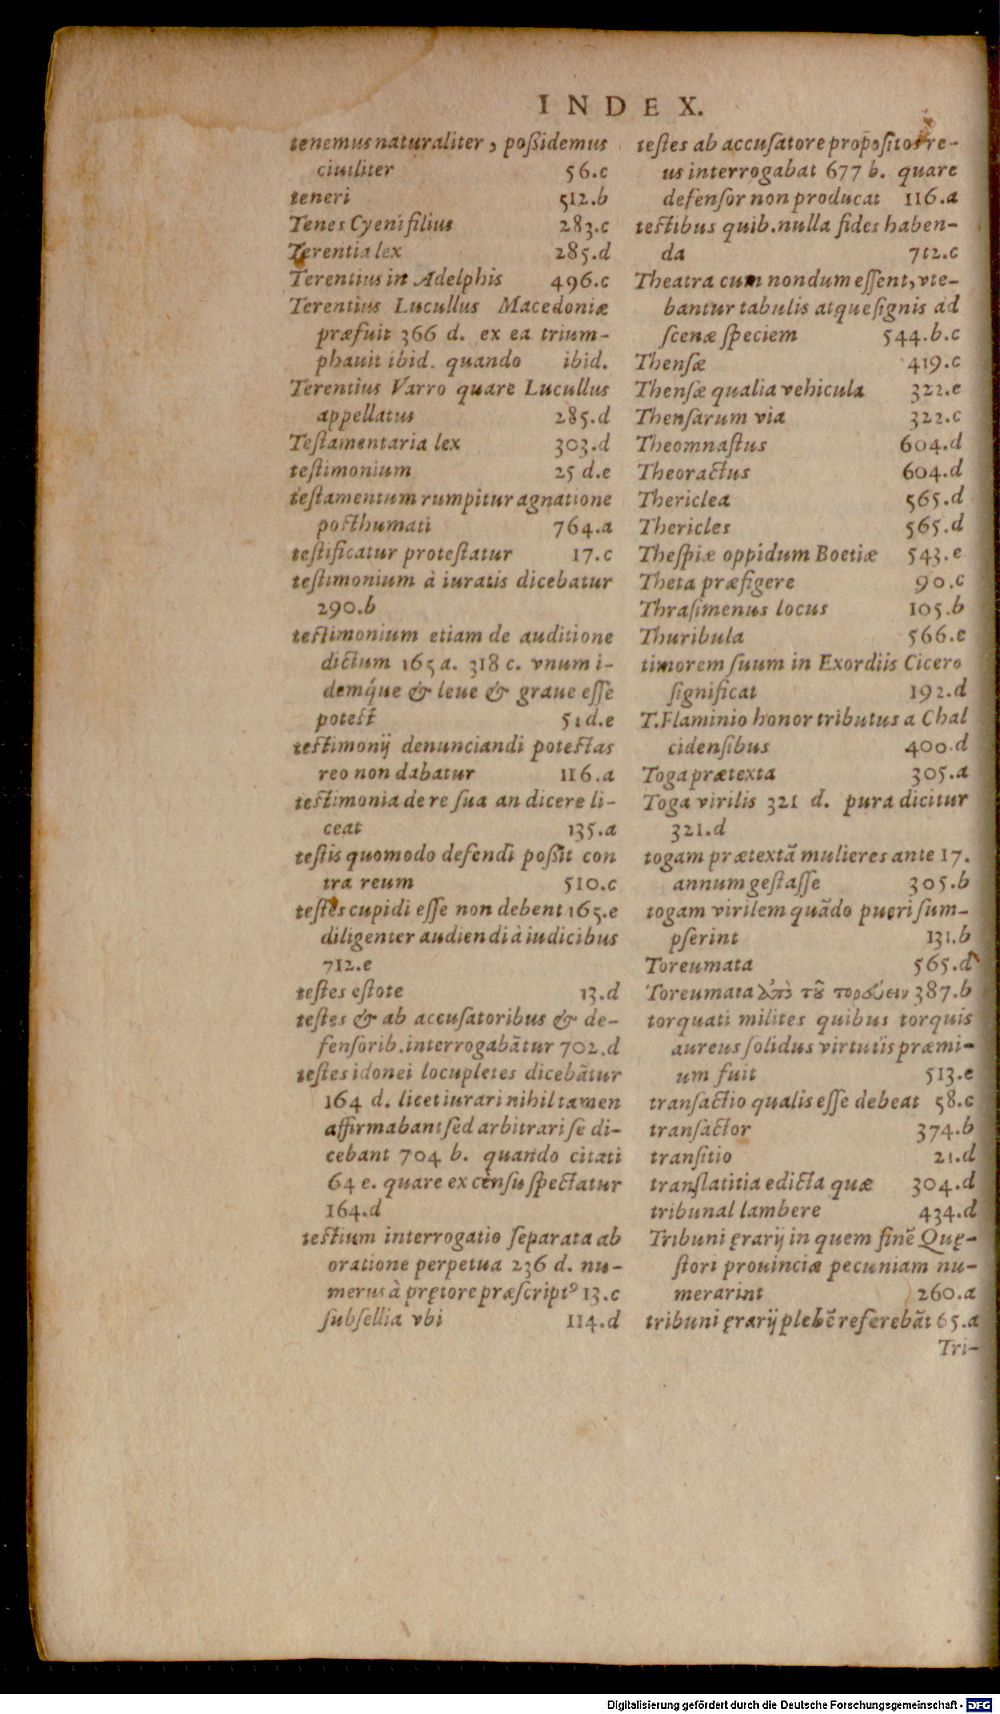 INDEX.
tenemus naturaliter, poßidemus
ciuiliter 56.c
teneri 512.b
Tenes Cyeni filius 283.c
Terentia lex 285.d
Terentius in Adelphis 496.c
Terentius Lucullus Macedoniæ
præfuit 366 d. ex ea trium-
phauit ibid. quando ibid.
Terentius Varro quare Lucullus
appellatus 285.d
Teſtamentaria lex 303.d
teſtimonium 25 d.e
teſtamentum rumpitur agnatione
poſthumati 764.a
teſtificatur proteſtatur 17.c
teſtimonium à iuratis dicebatur
290.b
teſtimonium etiam de auditione
dictum 165 a. 318 c. vnum i-
demq́ue & leue & graue eſſe
poteſt 51 d.e
teſtimonij denunciandi poteſtas
reo non dabatur 116.a
teſtimonia de re ſua an dicere li-
ceat 135.a
teſtis quomodo defendi poßit con
tra reum 510.c
teſtes cupidi eſſe non debent 165.e
diligenter audiendi à iudicibus
712.e
teſtes eſtote 13.d
teſtes & ab accuſatoribus & de-
fenſorib. interrogabātur 702.d
teſtes idonei locupletes dicebātur
164 d. licet iurari nihil tamen
affirmabant ſed arbitrari ſe di-
cebant 704 b. quando citati
64 e. quare ex cenſu ſpectatur
164.d
teſtium interrogatio ſeparata ab
oratione perpetua 236 d. nu-
merus à prętore præſcriptꝰ 13.c
ſubſellia vbi 114.d
teſtes ab accuſatore propoſitos re-
us interrogabat 677 b. quare
defenſor non producat 116.a
teſtibus quib. nulla fides haben-
da 712.c
Theatra cum nondum eſſent, vte-
bantur tabulis atque ſignis ad
ſcenæ ſpeciem 544.b.c
Thenſæ 419.c
Thenſæ qualia vehicula 322.e
Thenſarum via 322.c
Theomnaſtus 604.d
Theoractus 604.d
Thericlea 565.d
Thericles 565.d
Theſpiæ oppidum Boetiæ 543.e
Theta præfigere 90.c
Thraſimenus locus 105.b
Thuribula 566.e
timorem ſuum in Exordiis Cicero
ſignificat 192.d
T. Flaminio honor tributus a Chal
cidenſibus 400.d
Toga prætexta 305.a
Toga virilis 321 d. pura dicitur
321.d
togam prætextā mulieres ante 17.
annum geſtaſſe 305.b
togam virilem quādo pueri ſum-
pſerint 131.b
Toreumata 565.d
Toreumata ἀπὸ τοῦ τορεύειν 387.b
torquati milites quibus torquis
aureus ſolidus virtutis præmi-
um fuit 513.e
tranſactio qualis eſſe debeat 58.c
tranſactor 374.b
tranſitio 21.d
tranſlatitia edicta quæ 304.d
tribunal lambere 434.d
Tribuni ęrarij in quem finē Quę-
ſtori prouinciæ pecuniam nu-
merarint 260.a
tribuni ęrarij plebē referebāt 65.a
Tri-
Digitalisierung gefördert durch die Deutsche Forschungsgemeinschaft - DFG